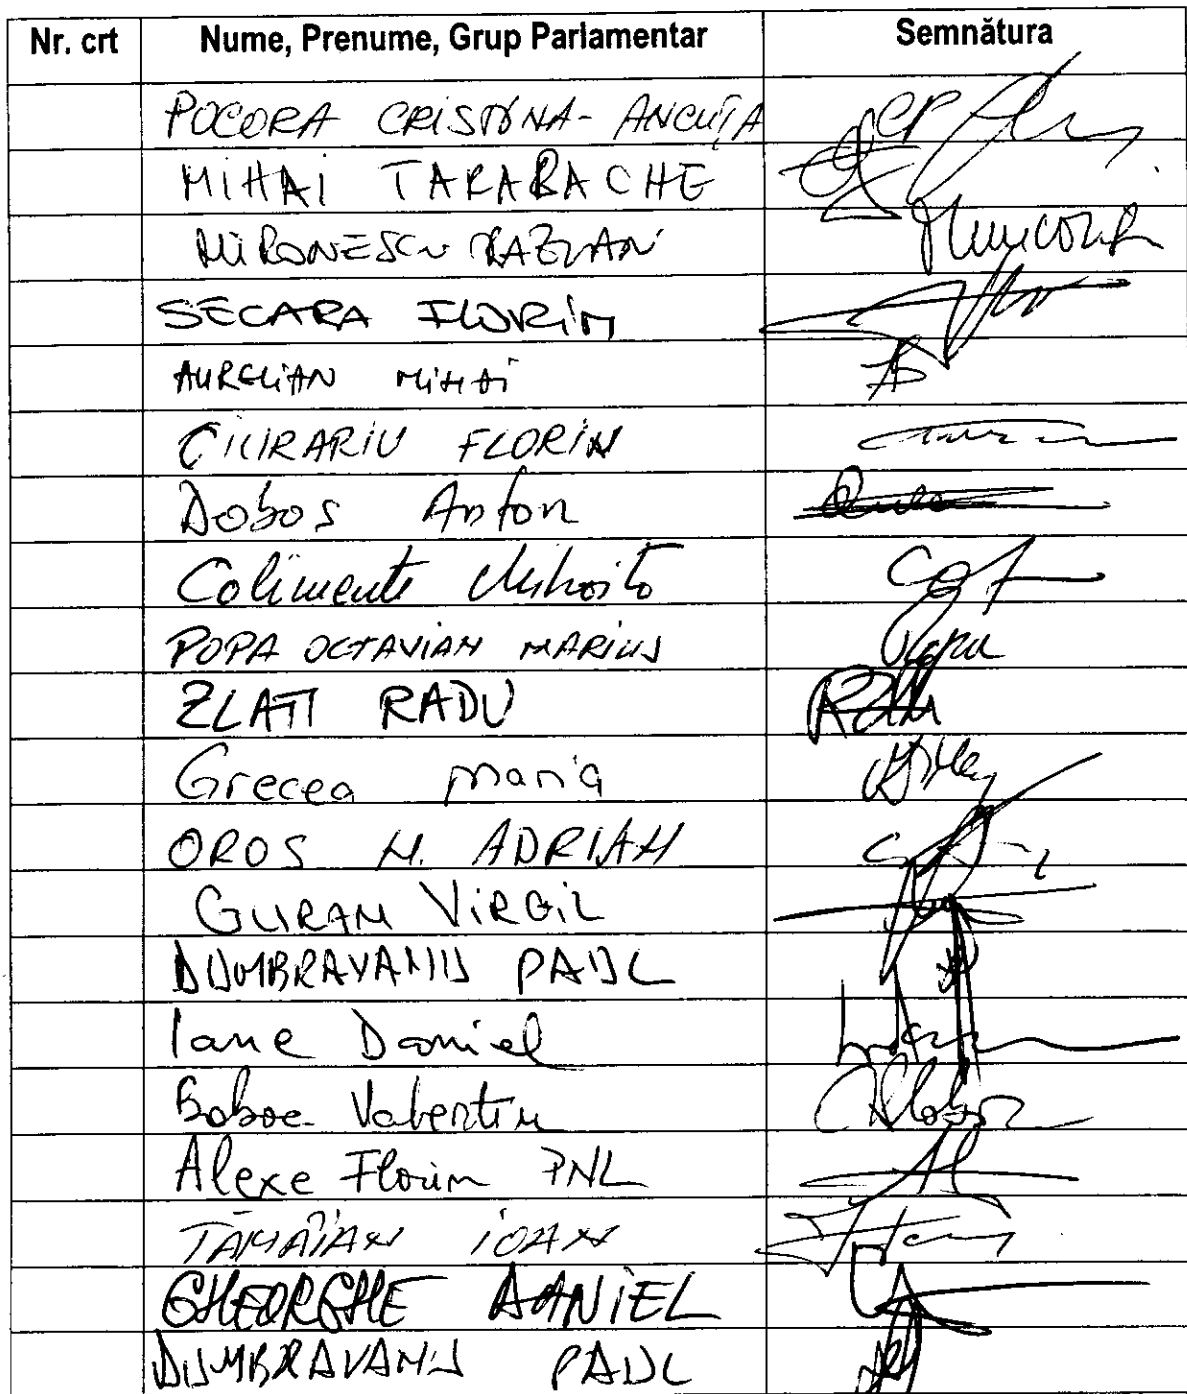 Nr. crt Nume, Prenume, Grup Parlamentar Semnătura
POCORA CRISTINA-ANCUȚA
MIHAI TARABACHE
MIRONESCU RAZVAN
SECARA FLORIN
AURELIAN MIHAI
CIURARIU FLORIN
Dobos Anton
Calimente Mihăiță
POPA OCTAVIAN MARIUS Popa
ZLATI RADU
Grecea Maria
OROS N. ADRIAN
GURAN VIRGIL
DUMBRAVANU PAUL
Iane Daniel
Boboc Valentin
Alexe Florin PNL
TĂMÂIAN IOAN
GHEORGHE DANIEL
DUMBRAVANU PAUL